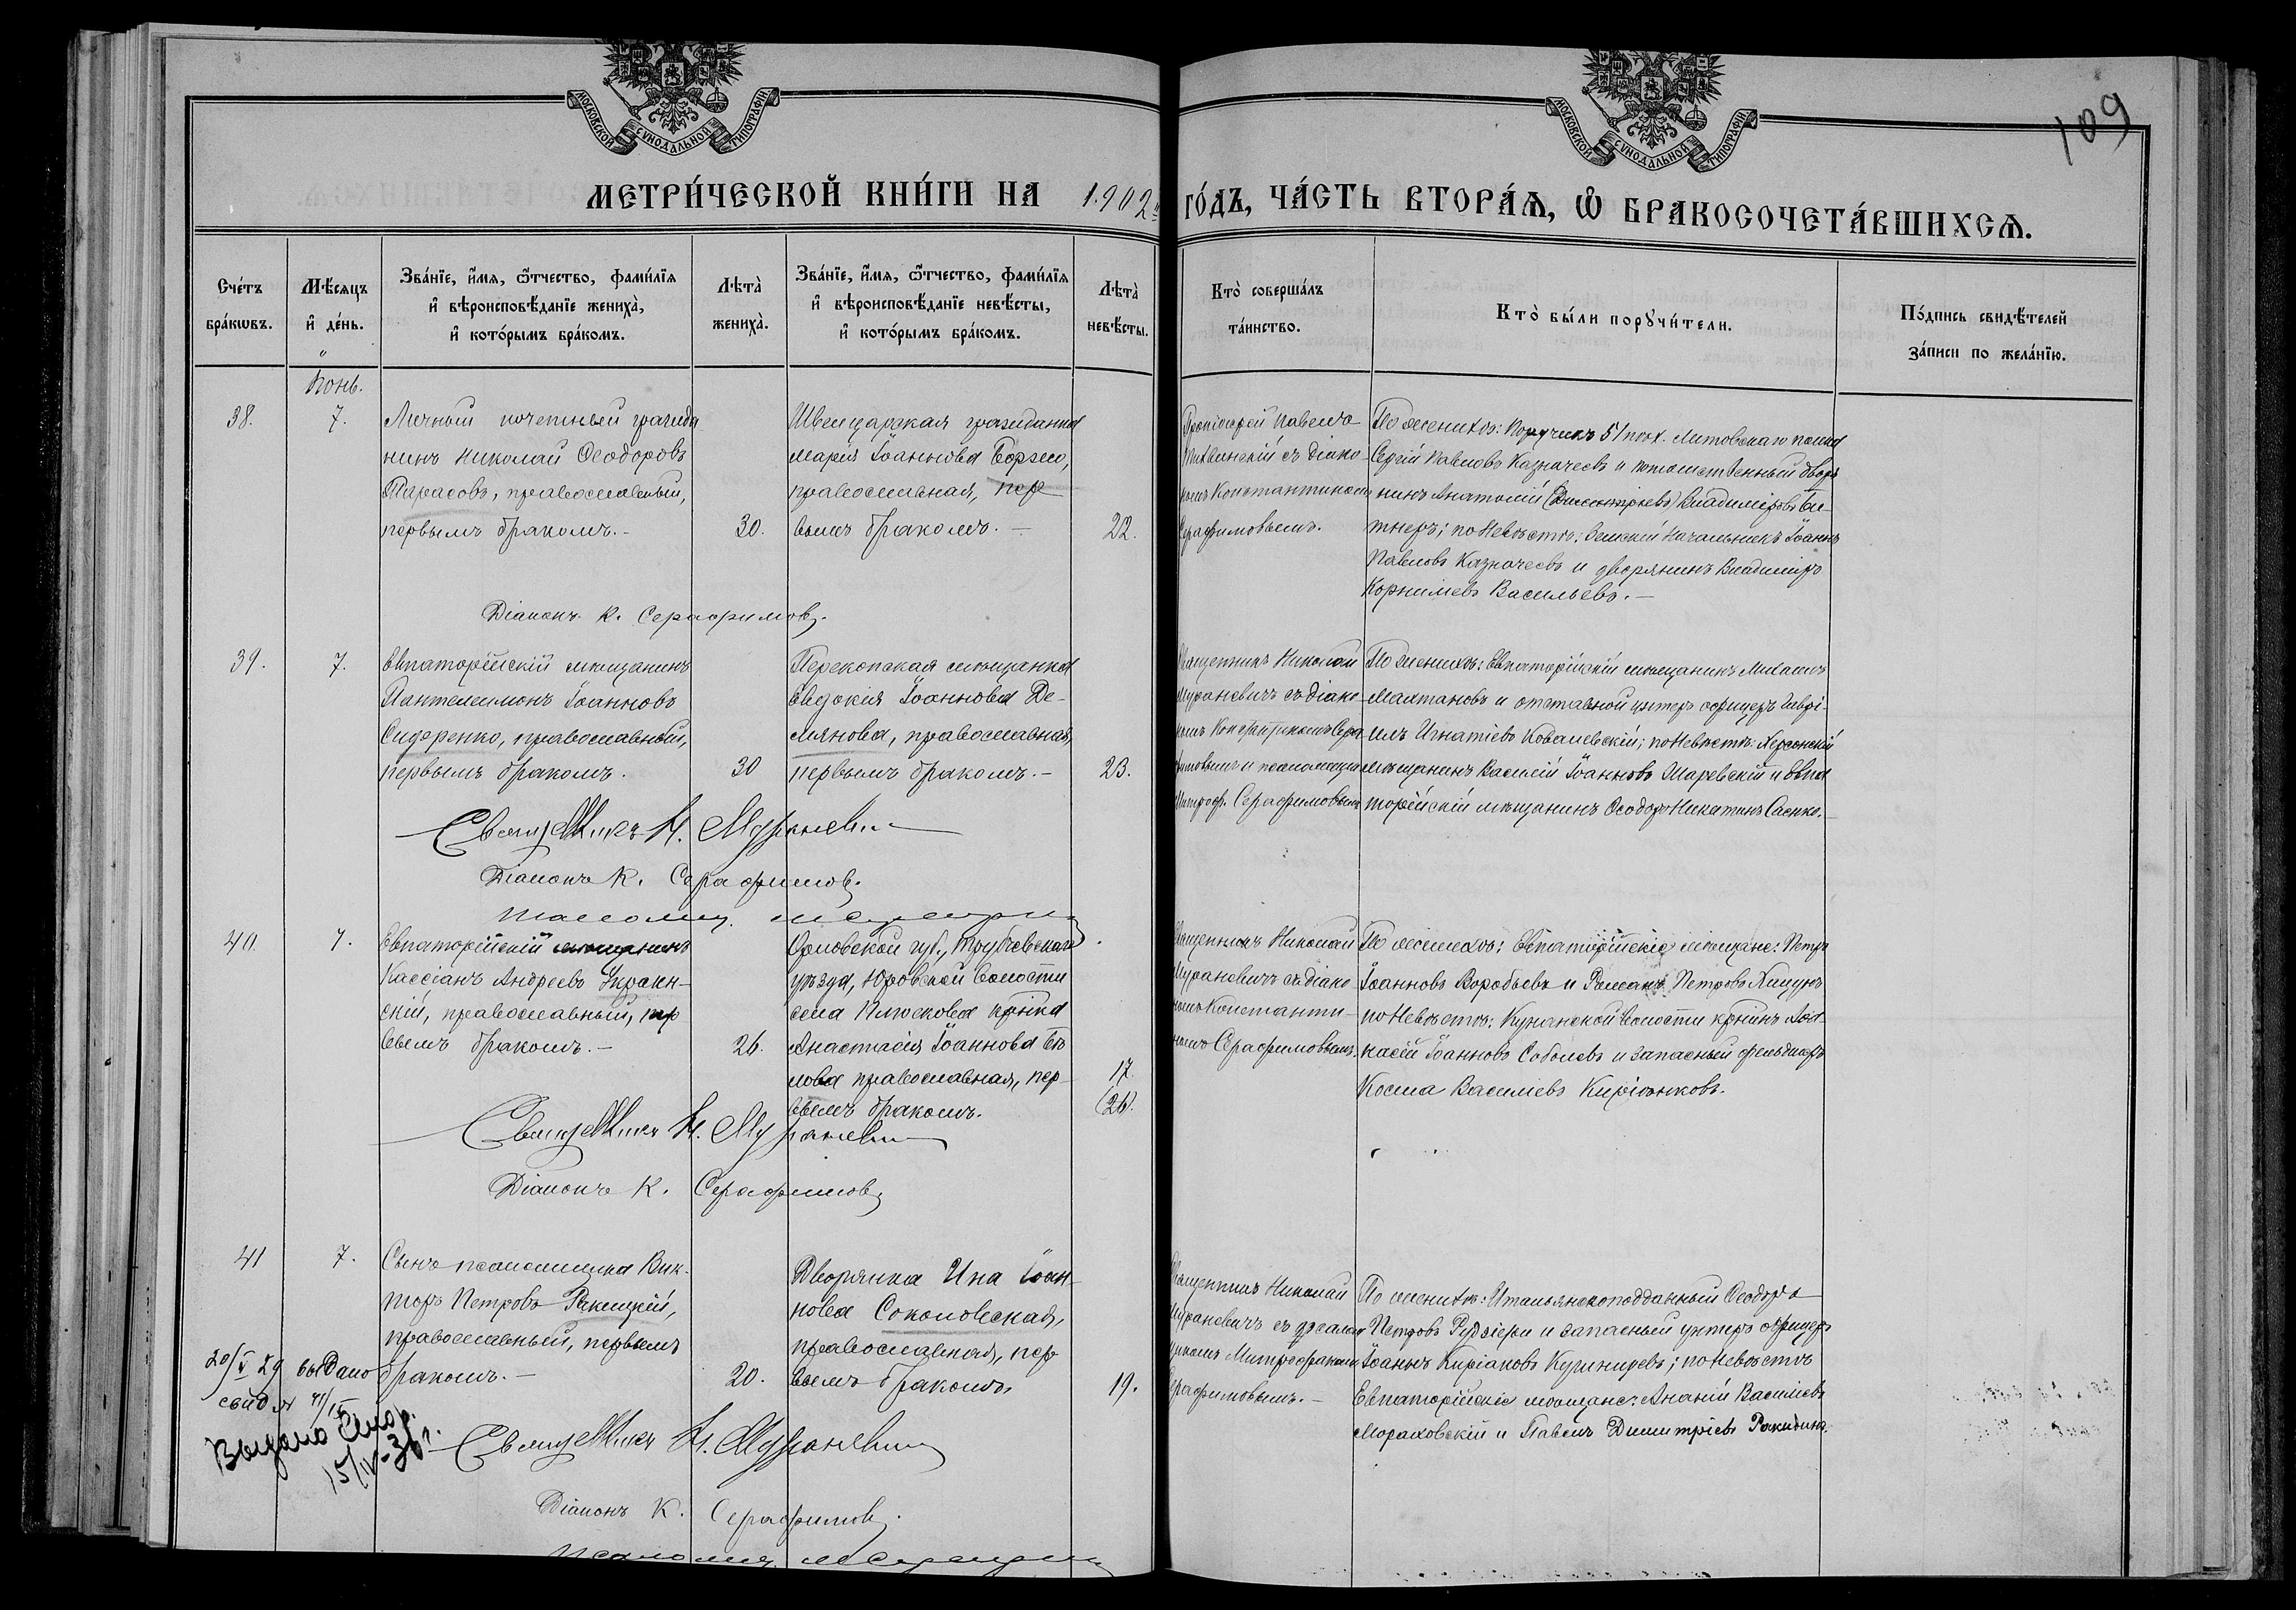 МОСКОВСКОЙ СѴНОДАЛЬНОЙ ТИПОГРАФІИ
МОСКОВСКОЙ СѴНОДАЛЬНОЙ ТИПОГРАФІИ
109
МЕТРИ́ЧЕСКОЙ КНИ́ГИ НА 1902й ГО́ДЪ, ЧА́СТЬ ВТОРА́Ѧ, Ѽ БРАКОСОЧЕТА́ВШИХСѦ.
Сче́тъ бра́кѡвъ.
Мѣ́сяцъ и҆ де́нь.
Зва́нїе, и҆́мѧ, ѻ҆́тчество, фами́лїѧ
и҆ вѣроисповѣ́данїе жениха̀,
и҆ кото́рымъ бра́комъ.
Лѣта̀ жениха̀.
Зва́нїе, и҆́мѧ, ѻ҆́тчество, фами́лїѧ
и҆ вѣроисповѣ́данїе невѣ́сты,
и҆ кото́рымъ бра́комъ.
Лѣта̀ невѣ́сты.
Кто̀ соверша́лъ та́инство.
Кто̀ бы́ли порꙋчи́тели.
По́дпись свидѣ́телей
за́писи по жела́нїю.
Іюнь.
38.
7.
Личный почетный гражда
нинъ Николай Ѳеодоровъ
Тарасовъ, православный,
первымъ бракомъ.-
30.
Швейцарская гражданка
Марія Іоаннова Борзео,
православная, пер
вымъ бракомъ.-
22.
Протоіерей Павелъ
Тихвинскій съ діако-
номъ Константиномъ
Серафимовымъ.
По женихѣ: Поручикъ 51 пѣх. Литовскаго полка
Сергій Павловъ Казначеевъ и потомственный дворя
нинъ Анатолій (Димитріевъ) Владиміровъ Би-
тнеръ; по невѣстѣ: Земскій Начальникъ Іоаннъ
Павловъ Казначеевъ и дворянинъ Владиміръ
Корниліевъ Васильевъ.-
Діаконъ К. Серафимовъ.
39.
7.
Евпаторійскій мѣщанинъ
Пантелеимонъ Іоанновъ
Сидоренко, православный,
первымъ бракомъ.
30
Перекопская мѣщанка
Евдокія Іоаннова Де-
мянова, православная,
первымъ бракомъ.-
23.
Священникъ Николай
Мураневичъ съ діако-
номъ Константиномъ Сера
фимовымъ и псаломщик
Митроф. Серафимовымъ
По женихѣ: Евпаторійскій мѣщанинъ Михаилъ
Малтановъ и отставной унтеръ офицеръ Гаврі-
илъ Игнатіевъ Ковалевскій; по невѣстѣ: Херсонскій
мѣщанинъ Василій Іоанновъ Шаревскій и Евпа
торійскій мѣщанинъ Ѳеодоръ Никитинъ Саенко.-
Священникъ Н. Мураневичъ
Діаконъ К. Серафимовъ.
Псаломщ.
40.
7.
Евпаторійскій мѣщанинъ
Кассіанъ Андреевъ Украин-
скій, православный, пер
вымъ бракомъ.-
26.
Орловской губ., Трубчевскаго
уѣзда, Юровской волости
села Плюскова кр̃нка
Анастасія Іоаннова Бѣ
лова православная, пер-
вымъ бракомъ.
17.
(26).
Священникъ Николай
Мураневичъ съ діако
номъ Константи-
номъ Серафимовымъ.
По женихѣ: Евпаторійскіе мѣщане: Петръ
Іоанновъ Воробьевъ и Романъ Петровъ Хицунъ
по невѣстѣ: Кунанской волости кр̃нинъ Аѳа-
насій Іоанновъ Соболевъ и запасный фельдшеръ
Косма Василіевъ Киріонковъ.
Священникъ Н. Мураневичъ
Діаконъ К. Серафимовъ
41
7.
Сынъ псаломщика Вик-
торъ Петровъ Ракицкій,
православный, первымъ
бракомъ.-
20.
Дворянка Ина Іоан-
нова Соколовская,
православная, пер
вымъ бракомъ.
19.
Священникъ Николай
Мураневичъ съ псалом
щикомъ Митрофаномъ
Серафимовымъ.-
По женихѣ: Итальянскоподданный Ѳеодоръ
Петровъ Рудзіери и запасный унтеръ офицеръ
Іоаннъ Киріаковъ Кушнидевъ; по невѣстѣ
Евпаторійскіе мѣщане: Ананій Василіевъ
Мораховскій и Павелъ Димитріевъ Ракитинъ.
20/V 29 выдано
свид
Выдано
15/IV-36г.
Священникъ Н. Мураневичъ
Діаконъ К. Серафимовъ.
Псаломщ.